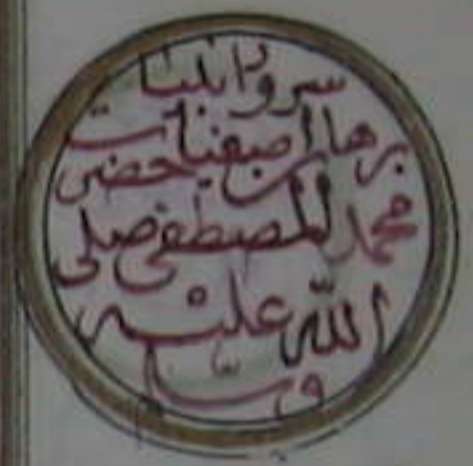 سرور انبيا
برهان اصفيا حضرت
محمد المصطفى صلى
الله عليه
وسلم